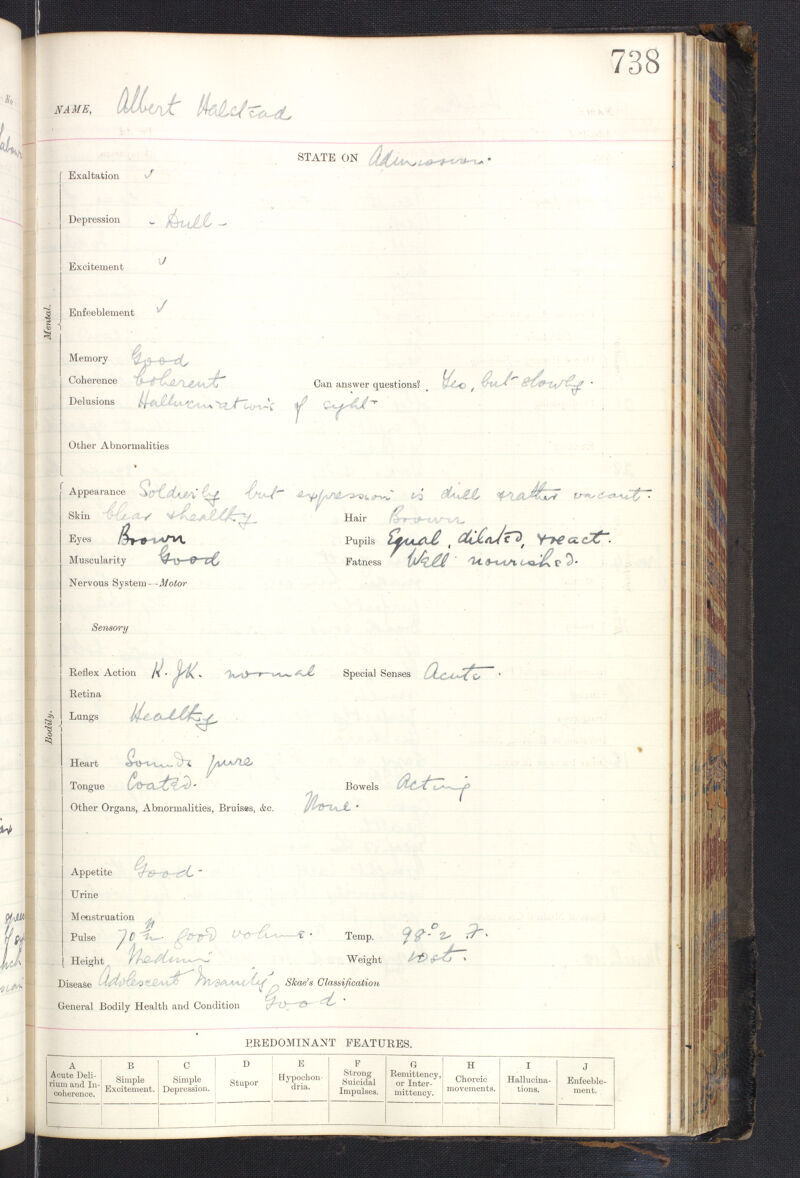 738
NAME, Albert Halstead
STATE ON Admission.
Mental.
Exaltation ✓
Depression - Dull -
Excitement ✓
Enfeeblement ✓
Memory Good
Coherence Coherent Can answer questions? Yes, but slowly.
Delusions Hallucinations of sight
Other Abnormalities
Bodily.
Appearance Soldierly but expression is dull & rather vacant.
Skin Clear & healthy Hair Brown
Eyes Brown Pupils Equal, dilated, & react.
Muscularity Good Fatness Well nourished.
Nervous System—Motor
Sensory
Reflex Action K. JK. normal Special Senses Acute.
Retina
Lungs Healthy
Heart Sounds pure
Tongue Coated. Bowels Acting
Other Organs, Abnormalities, Bruises, &c. None.
Appetite Good-
Urine
Menstruation
Pulse 70 good volume. Temp. 98°.2 F.
Height Medium Weight 10 st.
Disease Adolescent Insanity Skae's Classification
General Bodily Health and Condition Good.
PREDOMINANT FEATURES.
A B C D E F G H I J
Acute Delirium and Incoherence. Simple Excitement. Simple Depression. Stupor Hypochondria. Strong Suicidal Impulses. Remittency, or Intermittency. Choreic movements. Hallucinations. Enfeeblement.